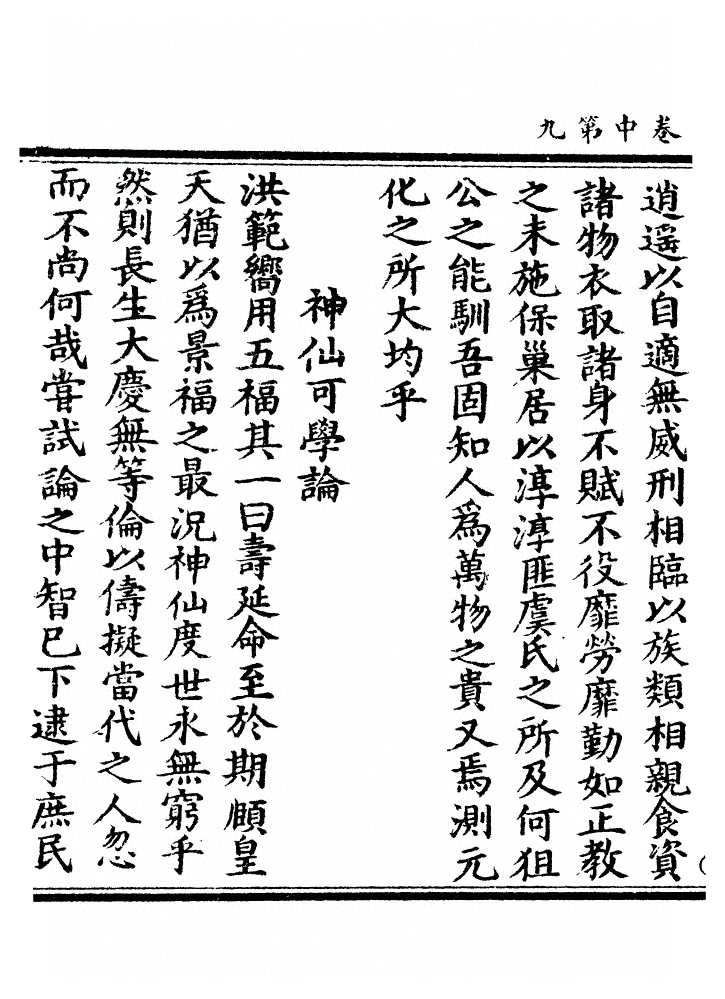 卷中第九
逍遥以自適無威刑相臨以族類相親食資
諸物衣取諸身不賦不役靡勞靡勤如正教
之未施保巢居以淳淳匪虞氏之所及何狙
公之能馴吾固知人爲萬物之貴又焉測元
化之所大均乎
神仙可學論
洪範嚮用五福其一曰壽延命至於期頤皇
天猶以爲景福之最況神仙度世永無窮乎
然則長生大慶無等倫以儔擬當代之人忽
而不尚何哉嘗試論之中智已下逮于庶民